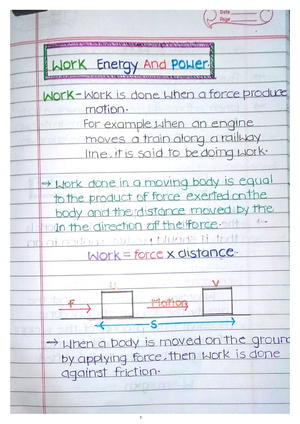 Date
Page
Work Energy And Power
Work - Work is done when a force produce
motion.
For example when an engine
moves a train along a railway
line, it is said to be doing work.
→ Work done in a moving body is equal
to the product of force exerted on the
body and the distance moved by the
In the direction of the force.
Work = force x distance.
U V
F Motion
S
→ When a body is moved on the ground
by applying force, then work is done
against friction.